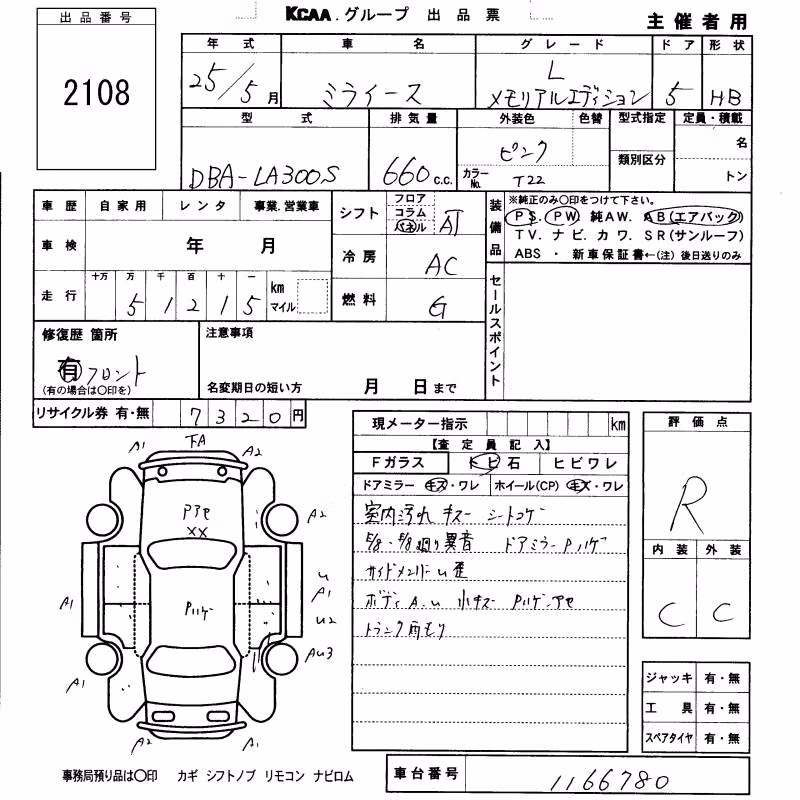 出品番号
2108
KCAA.グループ 出品票
主催者用
年式 車名 グレード ドア 形状
25/5月 ミライース L メモリアルエディション 5 HB
型式 排気量 外装色 色替 型式指定 定員・積載
DBA-LA300S 660c.c. ピンク 類別区分 名
カラーNo. T22 トン
車歴 自家用 レンタ 事業.営業車
車検 年 月
走行 十万 万 千 百 十 一 km マイル
5 1 2 1 5
シフト フロア コラム パネル AT
冷房 AC
燃料 G
装備品 ※純正のみ〇印をつけて下さい。
PS. PW 純AW. AB(エアバック)
TV. ナビ. カワ. SR(サンルーフ)
ABS ・ 新車保証書←(注)後日送りのみ
セールスポイント
修復歴 箇所
有 フロント
(有の場合は〇印を)
注意事項
名変期日の短い方 月 日まで
リサイクル券 有・無 7320円
現メーター指示 km
【査定員記入】
Fガラス トビ石 ヒビワレ
ドアミラー キズ・ワレ ホイール(CP) キズ・ワレ
室内汚れ キズ シートコゲ
廻り異音 ドアミラーPハゲ
サイドメンバーU歪
ボディA.U 小キズ Pハゲ.アセ
トランク雨モリ
評価点
R
内装 外装
C C
ジャッキ 有・無
工具 有・無
スペアタイヤ 有・無
A1 FA A2
Pアセ
XX
A2
U
A1
A1
Pハゲ
U2
AU3
A1
A2 A1
事務局預り品は〇印 カギ シフトノブ リモコン ナビロム
車台番号 1166780